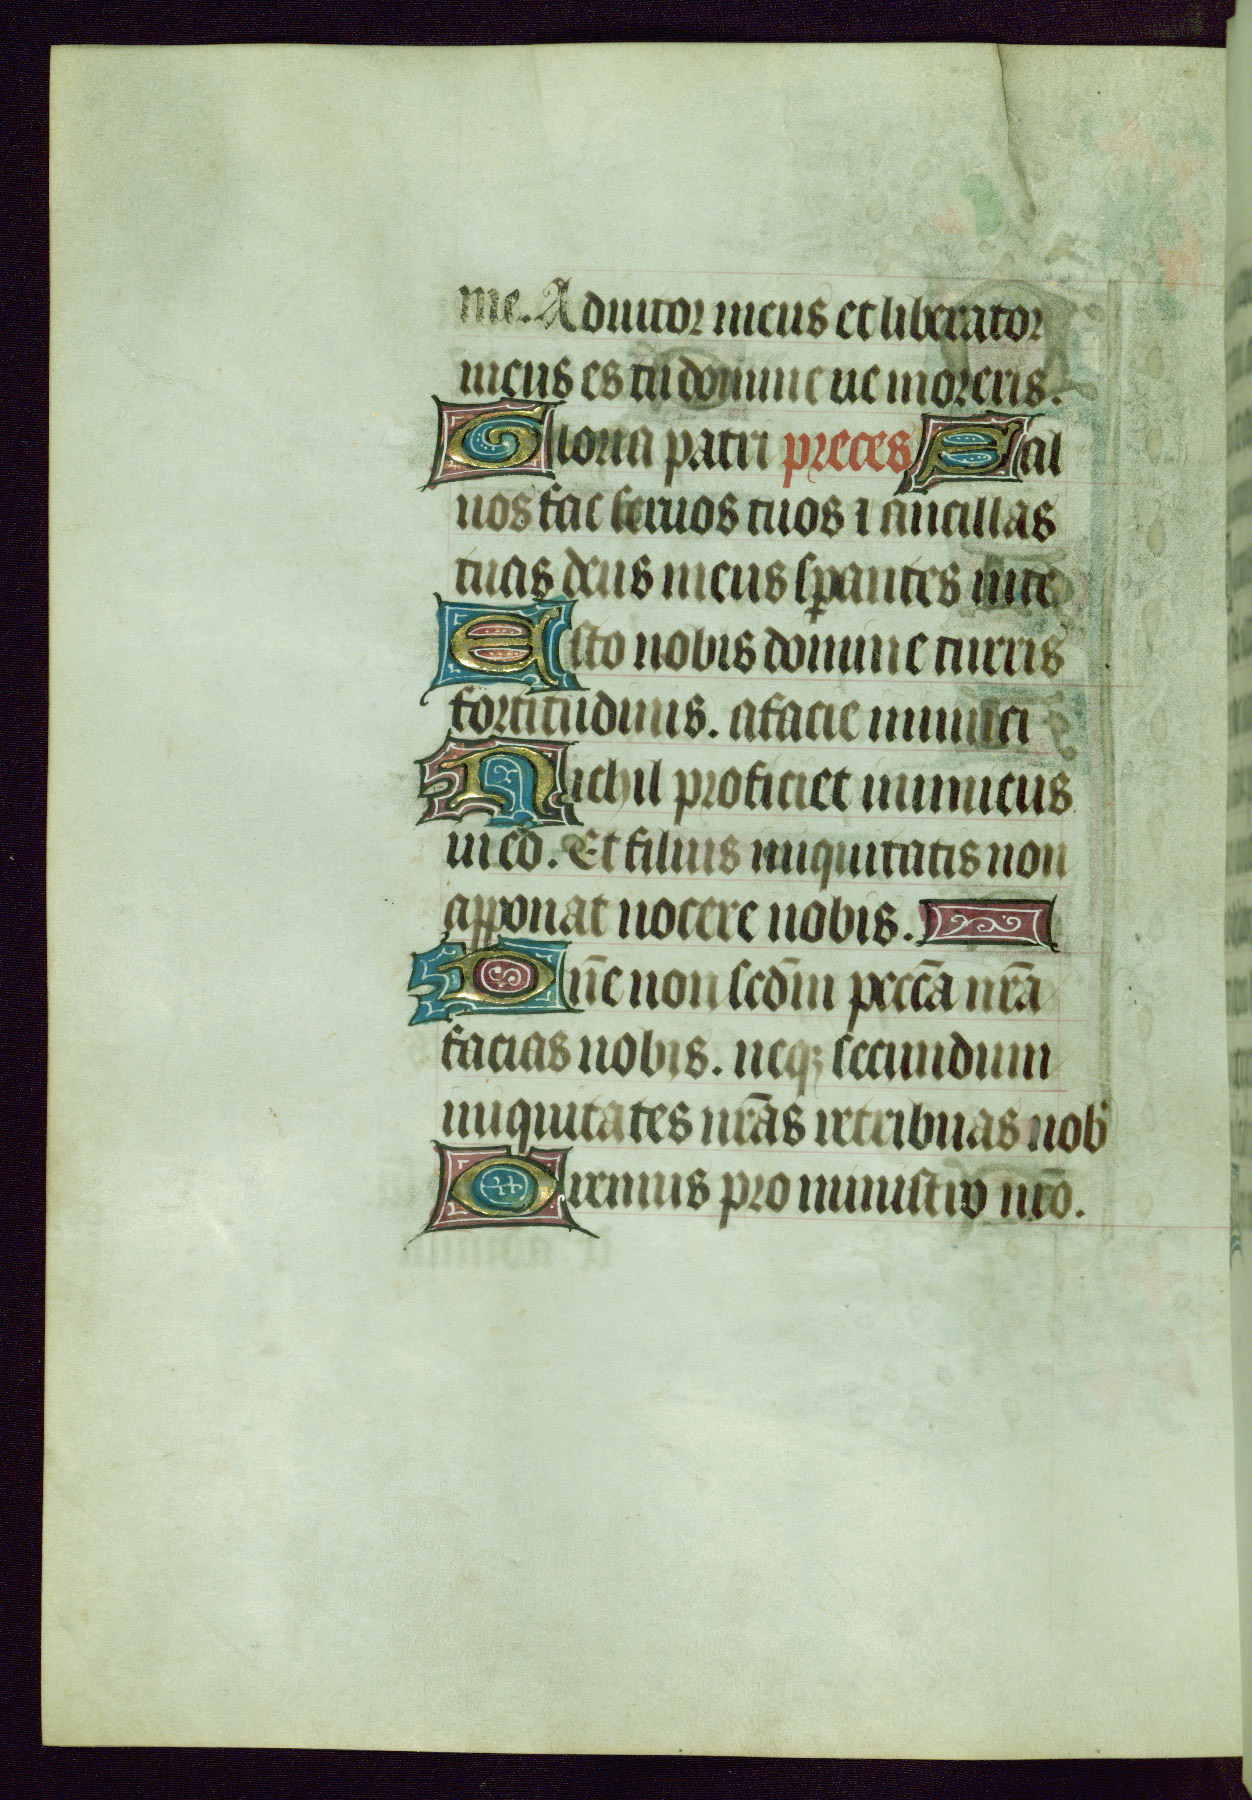 me. Adiutor meus et liberator
meus es tu domine ne moreris.
Gloria patri preces Sal
uos fac seruos tuos ⁊ ancillas
tuas deus meus sꝑantes inte
Esto nobis domine turris
fortitudinis. afacie inimici
Nichil proficiet inimicus
in eo. Et filius iniquitatis non
apponat nocere nobis.
Dn̄e non scdm̄ peccā nr̄a
facias nobis. neqꝫ secundum
iniquitates nr̄as retribuas nob
Oremus pro ministro nr̄o.